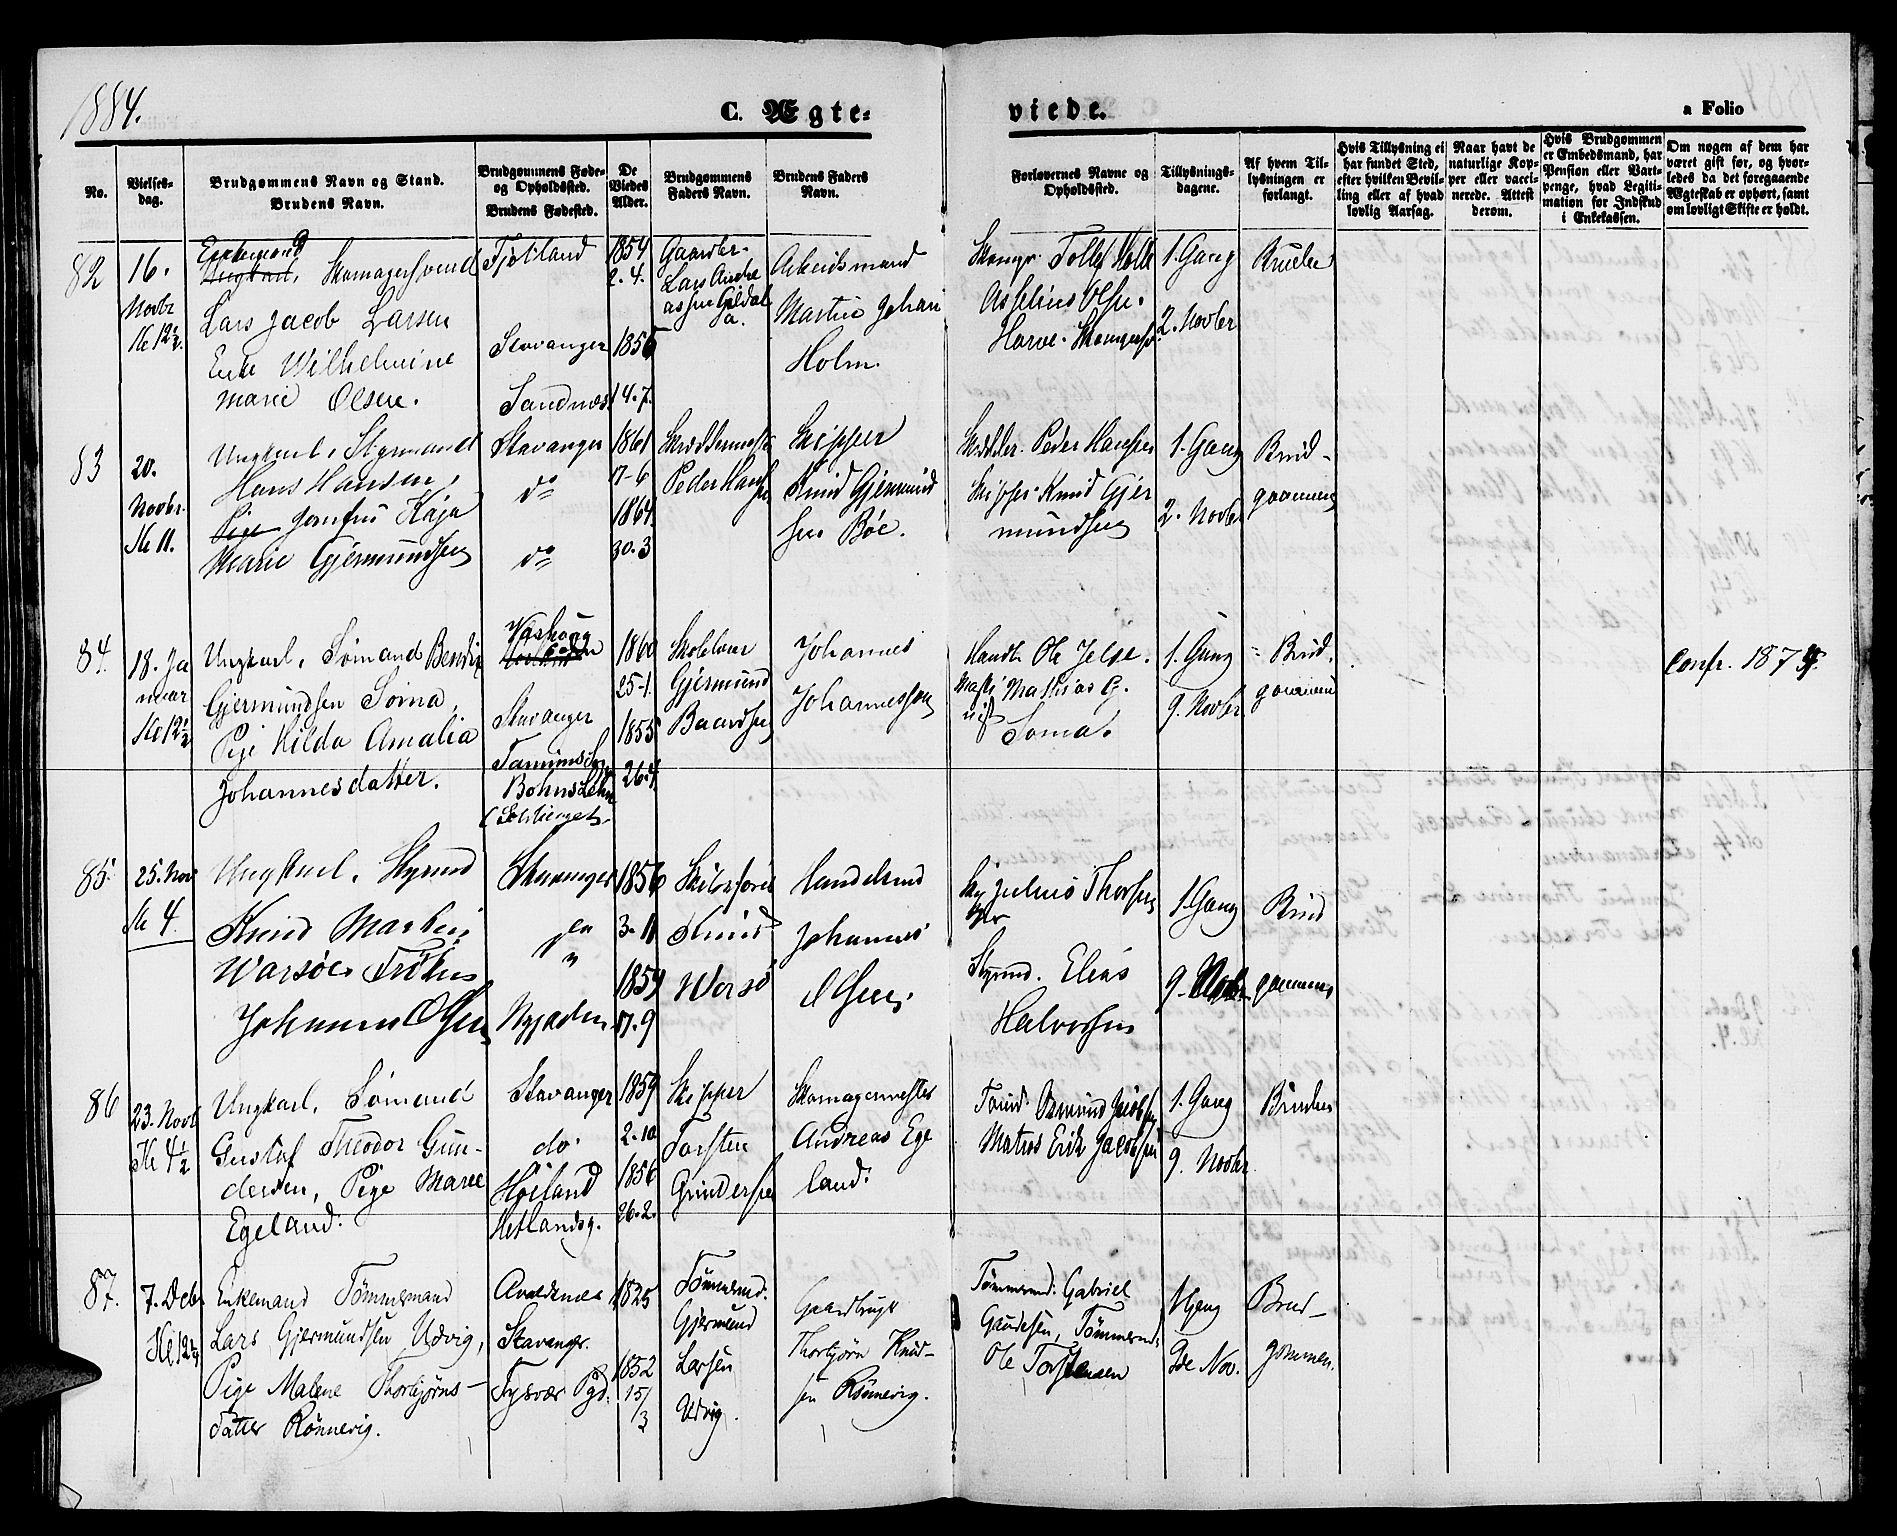 1884.
C. Ægte-
viede.
a Folio
No.
Vielses-
dag.
Brudgommens Navn og Stand.
Brudens Navn.
Brudgommens Føde-
og Opholdssted.
Brudens Fødested.
De
Viedes
Alder.
Brudgommens
Faders Navn.
Brudens Faders
Navn.
Forlovernes Navne og
Opholdssted.
Tillysnings-
dagene.
Af hvem Til-
lysningen er
forlangt.
Hvis Tillysning ei
har fundet Sted,
efter hvilken Bevil-
ling eller af hvad
lovlig Aarsag.
Naar havt de
naturlige Kop-
per eller vacci-
nerede. Attest
derom.
Hvis Brudgommen
er Embedsmand, har
Pension eller Vart-
penge, hvad Legiti-
mation for Indskud
i Enkekassen.
Om nogen af dem har
været gift før, og hvor-
ledes da det foregaaende
Ægteskab er ophørt, samt
om lovligt Skifte er holdt.
82
16.
Novbr
Kl 12½.
Enkemand
Ungkarl, Skomagersvend
Lars Jacob Larsen
Enke Wilhelmine
Marie Olsen.
Fjotland
Stavanger
Sandnes
1854
2.4.
1856
14.7.
Gaardbr.
Lars Andre
assen Gildal
Arbeidsmand
Martin Johan
Holm.
Skomgr. Tollef Holle
Asselius Olsen.
1. Gang
2. Novber
Bruden
83
20.
Novbr.
Kl 11.
Ungkarl, Styrmand
Hans Hansen,
Pige Jomfru Kaja
Marie Gjermundsen
Stavanger
do
do
1861
17-6
1864
30.3
Skræddermester
Peder Hansen
Skipper
Knud Gjermund
sen Bøe.
Skrædder. Peder Hansen
Skipper Knud Gjer
mundsen
1. Gang
2. Novbr
Brud-
gommen
84.
18. Ja
nuar
Kl 12½
Ungkarl, Sømand Bendix
Gjermundsen Soma,
Pige Hilda Amalia
Johannesdatter.
Stavanger
Bohus Lehn
1860
25-1.
1855
26.4.
Skolelærer
Gjermund
Baardsen
Johannes
Johannessen
Handlr Ole Jelse.
Mathias G.
Soma.
1. Gang
9. Novber
Brud.
gommen
Confr. 1875.
85.
25. Nov
Kl 4.
Ungkarl, Styrmd
Knud Martin
Warsøe, Frøken
Johanne Olsen
Stavanger
Nygaden
1856
3.11
1859
17.9
Skibsfører
Knud
Worsø
Handelsmd
Johannes
Olsen.
Julius Thorsen
Styrmd. Elias
Halvorsen
1. Gang
9. Novbr
Brud
gommen
86
23. Novb
Kl 4½
Ungkarl, Sømand
Gustaf Theodor Gun-
dersen, Pige Marie
Egeland.
Stavanger
do.
Høiland
Hetlandsg.
1859
2.10
1856
26.2.
Skipper
Torsten
Gundersen
Skomagermester
Andreas Ege
land.
Tømd. Osmund Jacobsen
Matros Erik Jacobsen
1. Gang
9. Novbr.
Bruden
87.
7. Debr
Kl 12½
Enkemand Tømmermand
Lars Gjermundsen Udvig,
Pige Malene Thorbjørns-
datter Rønnevig.
Avaldsnes
Stavanger.
Tysvær Pgd.
1825
1852
15/3
Tømmermd.
Gjermund
Larsen
Udvig.
Gaardbruger
Thorbjørn Knud-
sen Rønnevig.
Tømmermd. Gabriel
Gaudesen, Tømmermd.
Ole Torstensen
1 Gang
9de Nov.
Brud-
gommen.